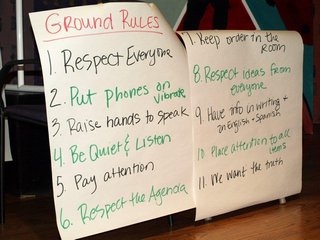 GROUND RULES
1. Respect Everyone
2. Put phones on
vibrate
3. Raise hands to speak
4. Be Quiet & Listen
5. Pay attention
6. Respect the Agenda
7. Keep order in the
Room
8. Respect ideas from
everyone
9. Have info in writing +
in English + Spanish
10. Place attention to all
items
11. We want the truth